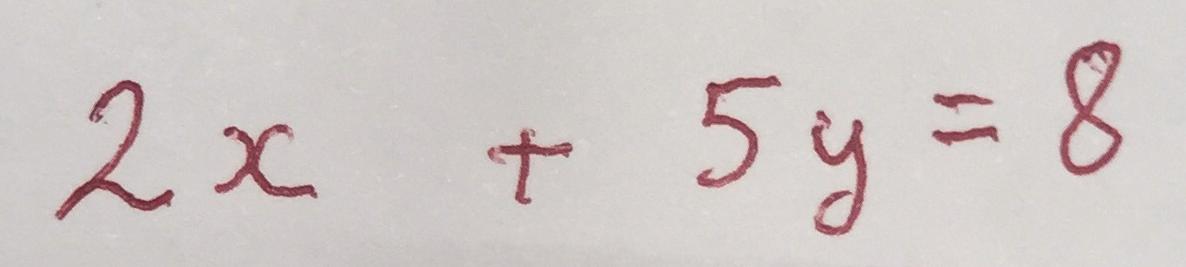 2x + 5y = 8